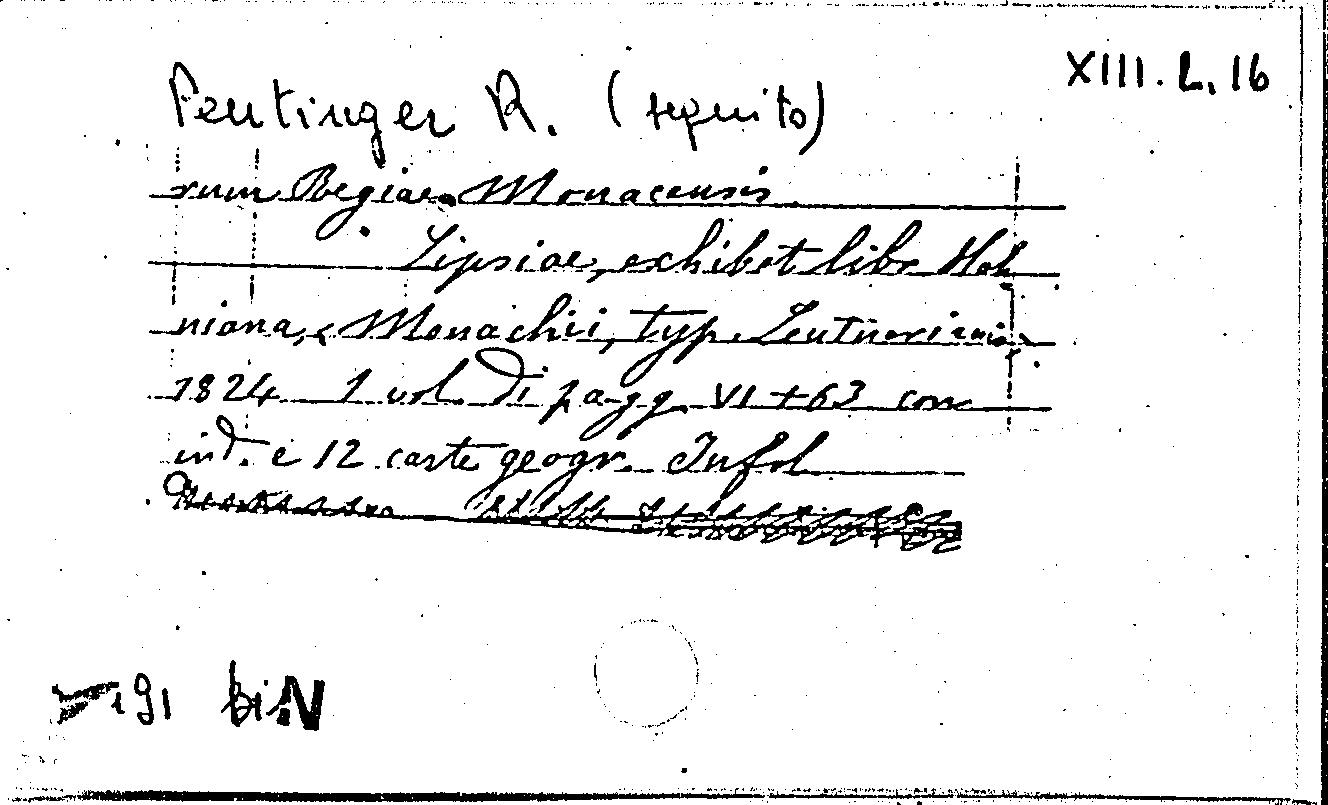 XIII. L. 16
Peutinger R. (seguito)
rum Regiae Monacensis
Lipsiae, exhibet libr Hah
niana, Monachii, typ. Leutneriani
1824 1 vol. di pagg. VI + 63 con
ind. e 12 carte geogr. In fol
191 bis N